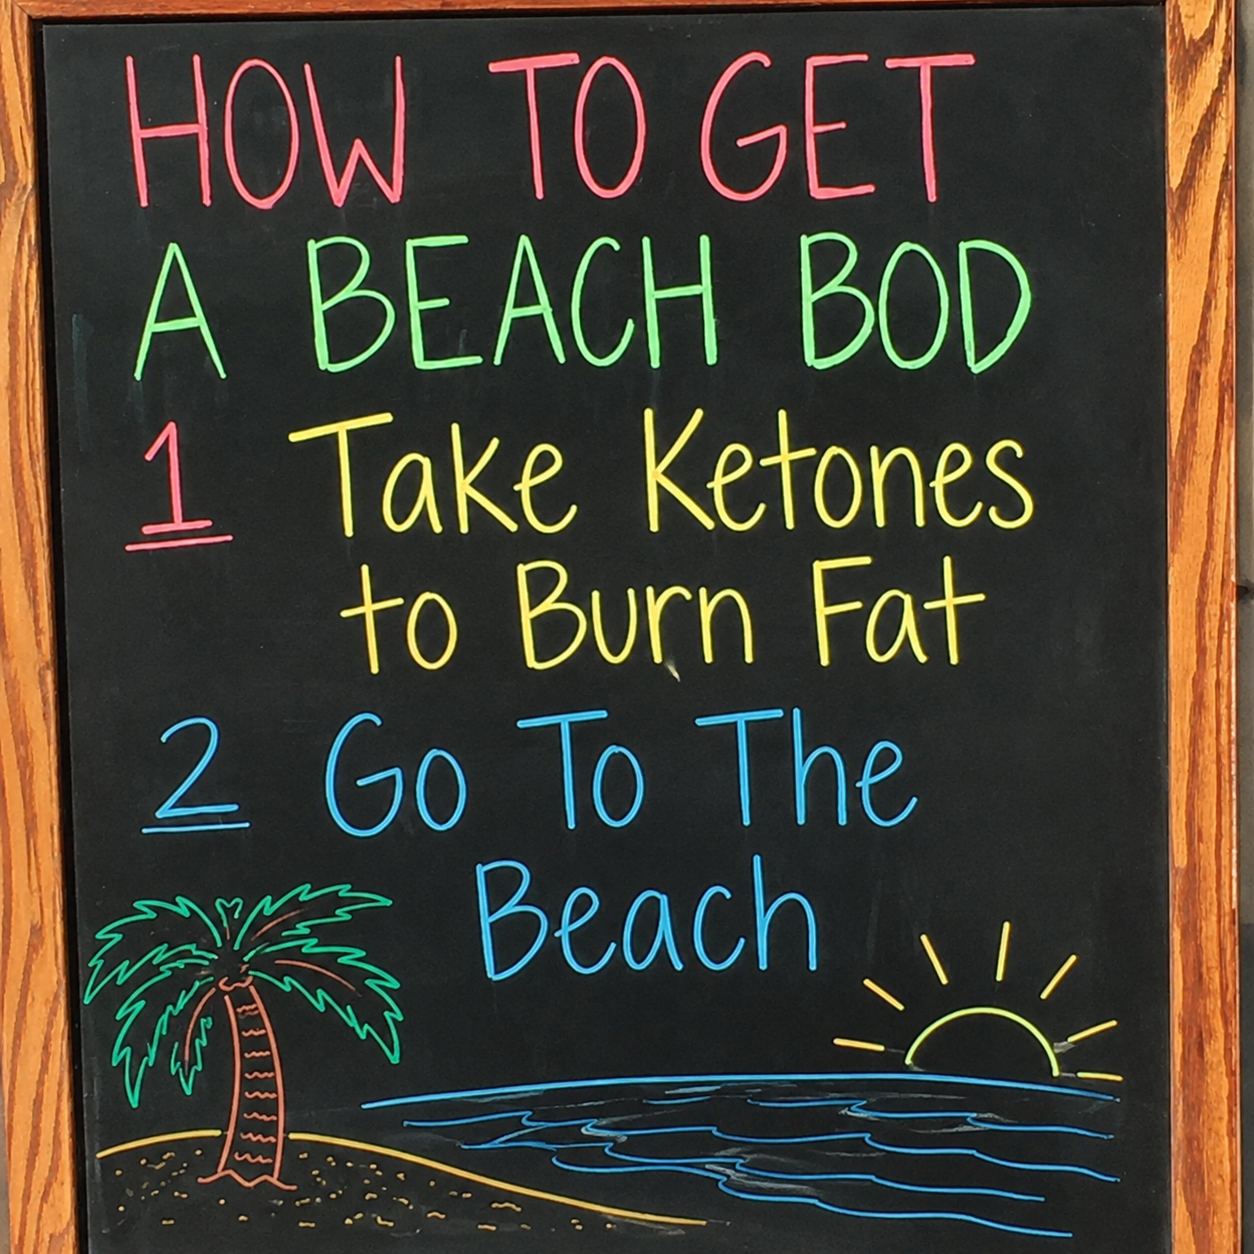 HOW TO GET
A BEACH BOD
1 Take Ketones
to Burn Fat
2 Go To The
Beach